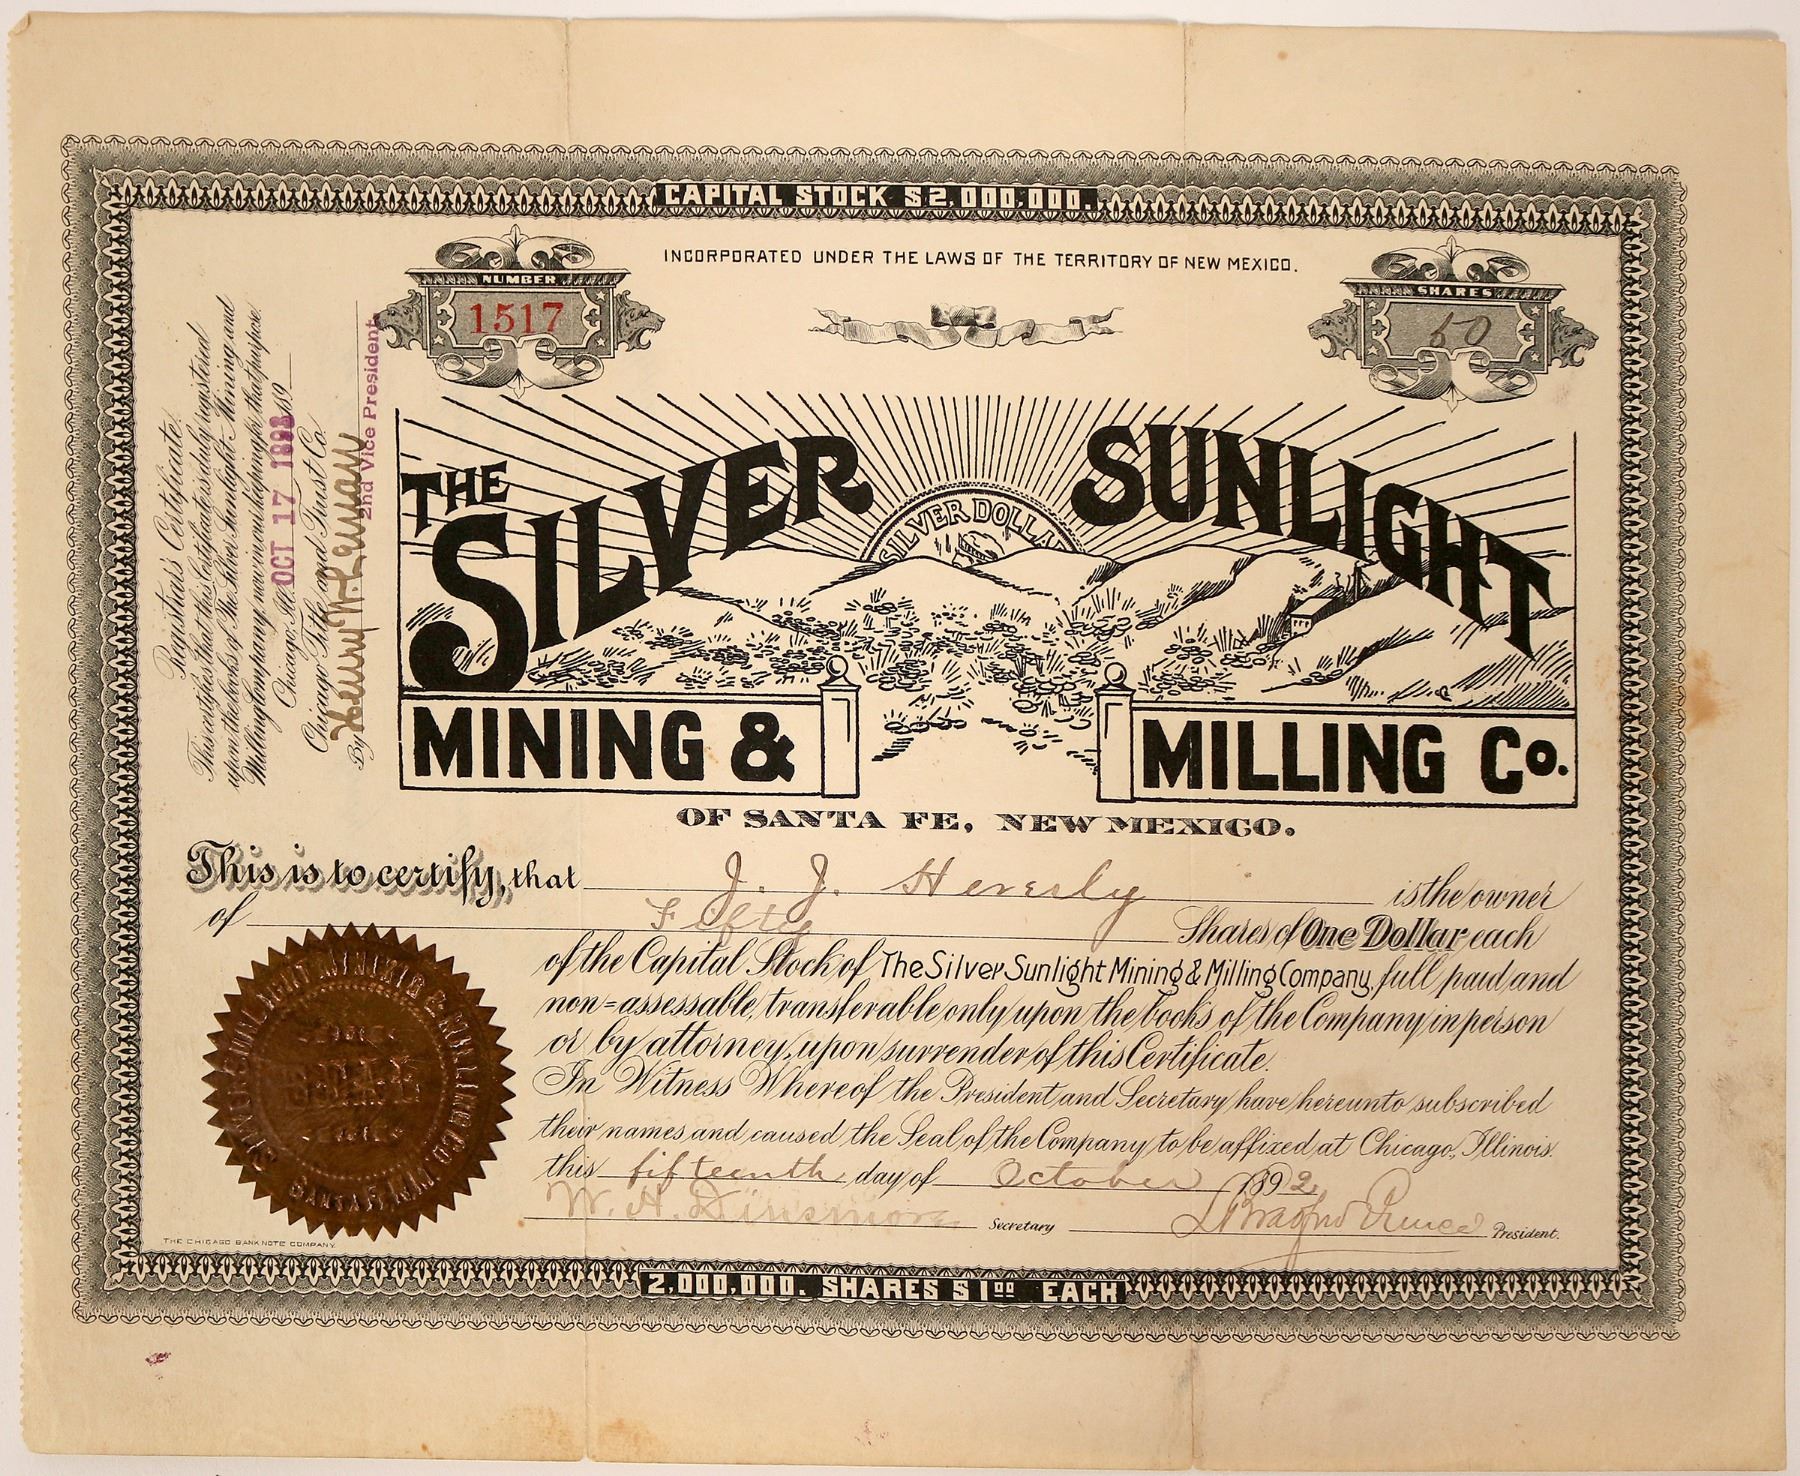 CAPITAL STOCK $2,000,000.
INCORPORATED UNDER THE LAWS OF THE TERRITORY OF NEW MEXICO.
NUMBER
1517
SHARES
50
THE SILVER SUNLIGHT
SILVER DOLLA
MINING & MILLING Co.
OF SANTA FE, NEW MEXICO.
Registrar's Certificate.
This certifies that this Certificate is duly registered
upon the books of The Silver Sunlight Mining and
Milling Company, now in our keeping for that purpose.
Chicago, Ill. OCT 17 189
Chicago Title and Trust Co.
By
2nd Vice President
This is to certify, that J. J. Heverly is the owner
of Fifty Shares of One Dollar each
of the Capital Stock of The Silver Sunlight Mining & Milling Company, full paid and
non=assessable, transferable only upon the books of the Company in person
or by attorney, upon surrender of this Certificate.
In Witness Whereof the President and Secretary have hereunto subscribed
their names, and caused the Seal of the Company to be affixed at Chicago, Illinois.
this fifteenth day of October 1892
W. H. Dinsmore Secretary L Bradford Prince President.
THE CHICAGO BANK NOTE COMPANY.
2,000,000. SHARES $1 00 EACH